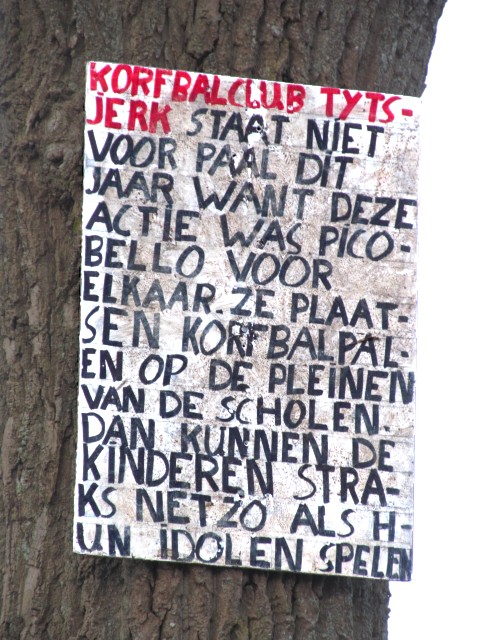 KORFBALCLUB TYTS-
JERK STAAT NIET
VOOR PAAL DIT
JAAR WANT DEZE
ACTIE WAS PICO-
BELLO VOOR
ELKAAR. ZE PLAAT-
SEN KORFBALPAL-
EN OP DE PLEINEN
VAN DE SCHOLEN.
DAN KUNNEN DE
KINDEREN STRA-
KS NET ZO ALS H-
UN IDOLEN SPELEN